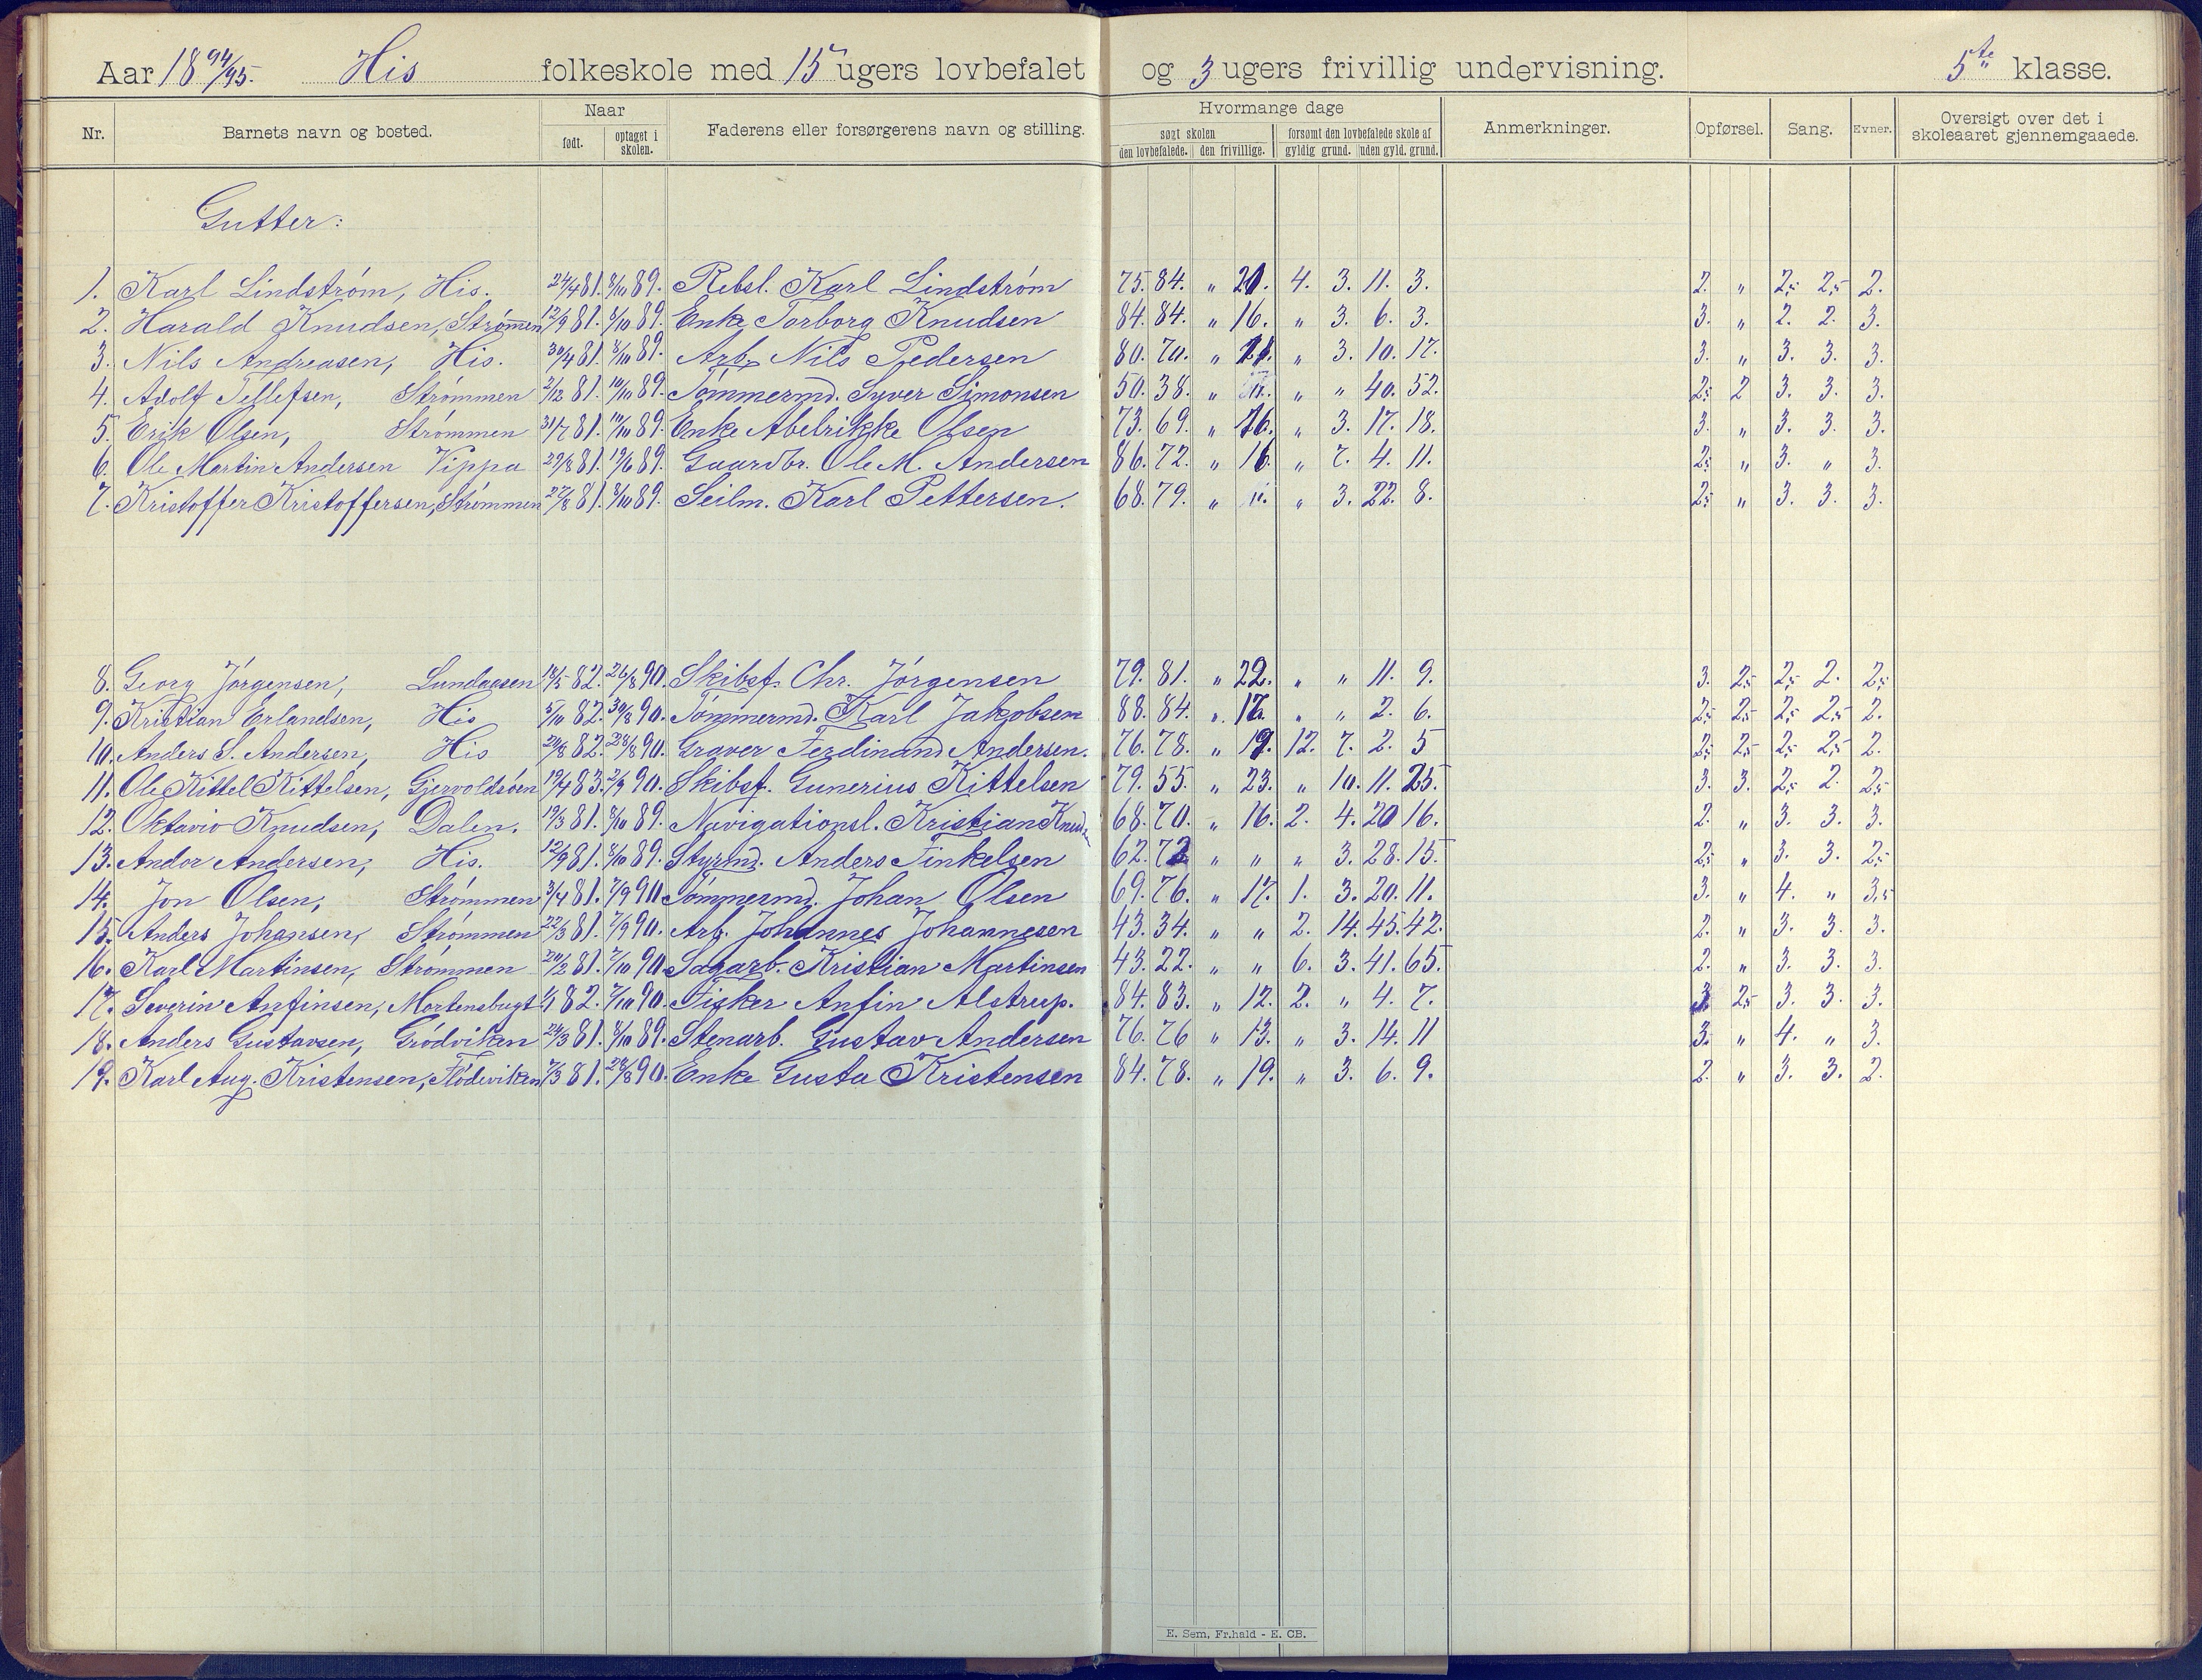 Aar 1894/95. His folkeskole med 15 ugers lovbefalet og 3 ugers frivillig undervisning. 5te klasse.
Nr. Barnets navn og bosted. Naar født. optaget i skolen. Faderens eller forsørgerens navn og stilling. Hvormange dage søgt skolen den lovbefalede. den frivillige. forsømt den lovbefalede skole af gyldig grund. uden gyld. grund. Anmerkninger. Opførsel. Sang. Evner. Oversigt over det i skoleaaret gjennemgaaede.
Gutter:
1. Karl Lindstrøm, His. 24/4 81. 8/10 89. Rebsl. Karl Lindstrøm 75. 84. " 20. 4. 3. 11. 3. 2. " 2,5 2,5 2.
2. Harald Knudsen, Strømmen 12/9 81. 8/10 89. Enke Torborg Knudsen 84. 84. " 16. " 3. 6. 3. 3. " 2. 2. 3.
3. Nils Andreasen, His. 30/4 81. 8/10 89. Arb. Nils Pedersen 80. 70. " 3. 10. 17. 3. " 3. 3. 3.
4. Adolf Tellefsen, Strømmen 2/12 81. 10/10 89. Tømmermd. Syver Simonsen 50. 38. " " " 40. 52. 2,5 2 3. 3. 3.
5. Erik Olsen, Strømmen 31/7 81. 10/10 89. Enke Abelrikke Olsen 73. 69. " 16. " 3. 17. 18. 3. " 3. 3. 3.
6. Ole Martin Andersen Vippa 29/8 81. 19/6 89. Gaardbr. Ole M. Andersen 86. 72. " 16. " 7. 4. 11. 2,5 " 3. " 3.
7. Kristoffer Kristoffersen, Strømmen 27/8 81. 8/10 89. Seilm. Karl Pettersen. 68. 79. " " 3. 22. 8. 2,5 " 3. 3. 3.
8. Georg Jørgensen, Lundaasen 18/5 82. 26/8 90. Skibsf. Chr. Jørgensen 79. 81. " 22. " " 11. 9. 3. 2,5 2,5 2. 2,5
9. Kristian Erlandsen, His 5/10 82. 30/8 90. Tømmermd. Karl Jakobsen 88. 84. " 17. " " 2. 6. 2,5 2,5 2,5 2,5 2.
10. Anders S. Andersen, His 24/8 82. 28/8 90. Graver Ferdinand Andersen. 76. 78. " 19. 12. 7. 2. 5 2,5 2,5 2,5 2,5 2.
11. Ole Kittel Kittelsen, Gjervoldsøen 19/4 83. 2/9 90. Skibsf. Gunerius Kittelsen 79. 55. " 23. " 10. 11. 25. 3. 3. 2,5 2. 2,5
12. Oktavio Knudsen, Dalen. 19/3 81. 8/10 89. Navigationsl. Kristian Knuds. 68. 70. " 16. 2. 4. 20 16. 2. " 3. 3. 3.
13. Andor Andersen, His. 12/9 81. 8/10 89. Styrmd. Anders Finkelsen 62. 72 " " " 3. 28. 15. 2,5 " 3. 3. 2,5
14. Jon Olsen, Strømmen 3/4 81. 7/9 90. Tømmermd. Johan Olsen 69. 76. " 17. 1. 3. 20. 11. 3. " 4. " 3,5
15. Anders Johansen, Strømmen 22/3 81. 7/9 90. Arb. Johannes Johannesen 43. 34. " " 2. 14. 45. 42. 2. " 3. 3. 3.
16. Karl Martinsen, Strømmen 20/2 81. 7/10 90. Sagarb. Kristian Martinsen 43. 22. " " 6. 3. 41. 65. 2. " 3. 3. 3.
17. Severin Anfinsen, Mortensbugt 1/1 82. 7/10 90. Fisker Anfin Alstrup. 84. 83. " 12. 2. " 4. 7. 3 2,5 3. 3. 3.
18. Anders Gustavsen, Grødviken 24/3 81. 8/10 89. Stenarb. Gustav Andersen 76. 76 " 13. " 3. 14. 11 3. " 4. " 3.
19. Karl Aug. Kristensen, Flødeviken 7/3 81. 28/8 90. Enke Gusta Kristensen 84. 78. " 19. " 3. 6. 9. 2. " 3. 3. 2.
E. Sem, Fr.hald - E. CB.